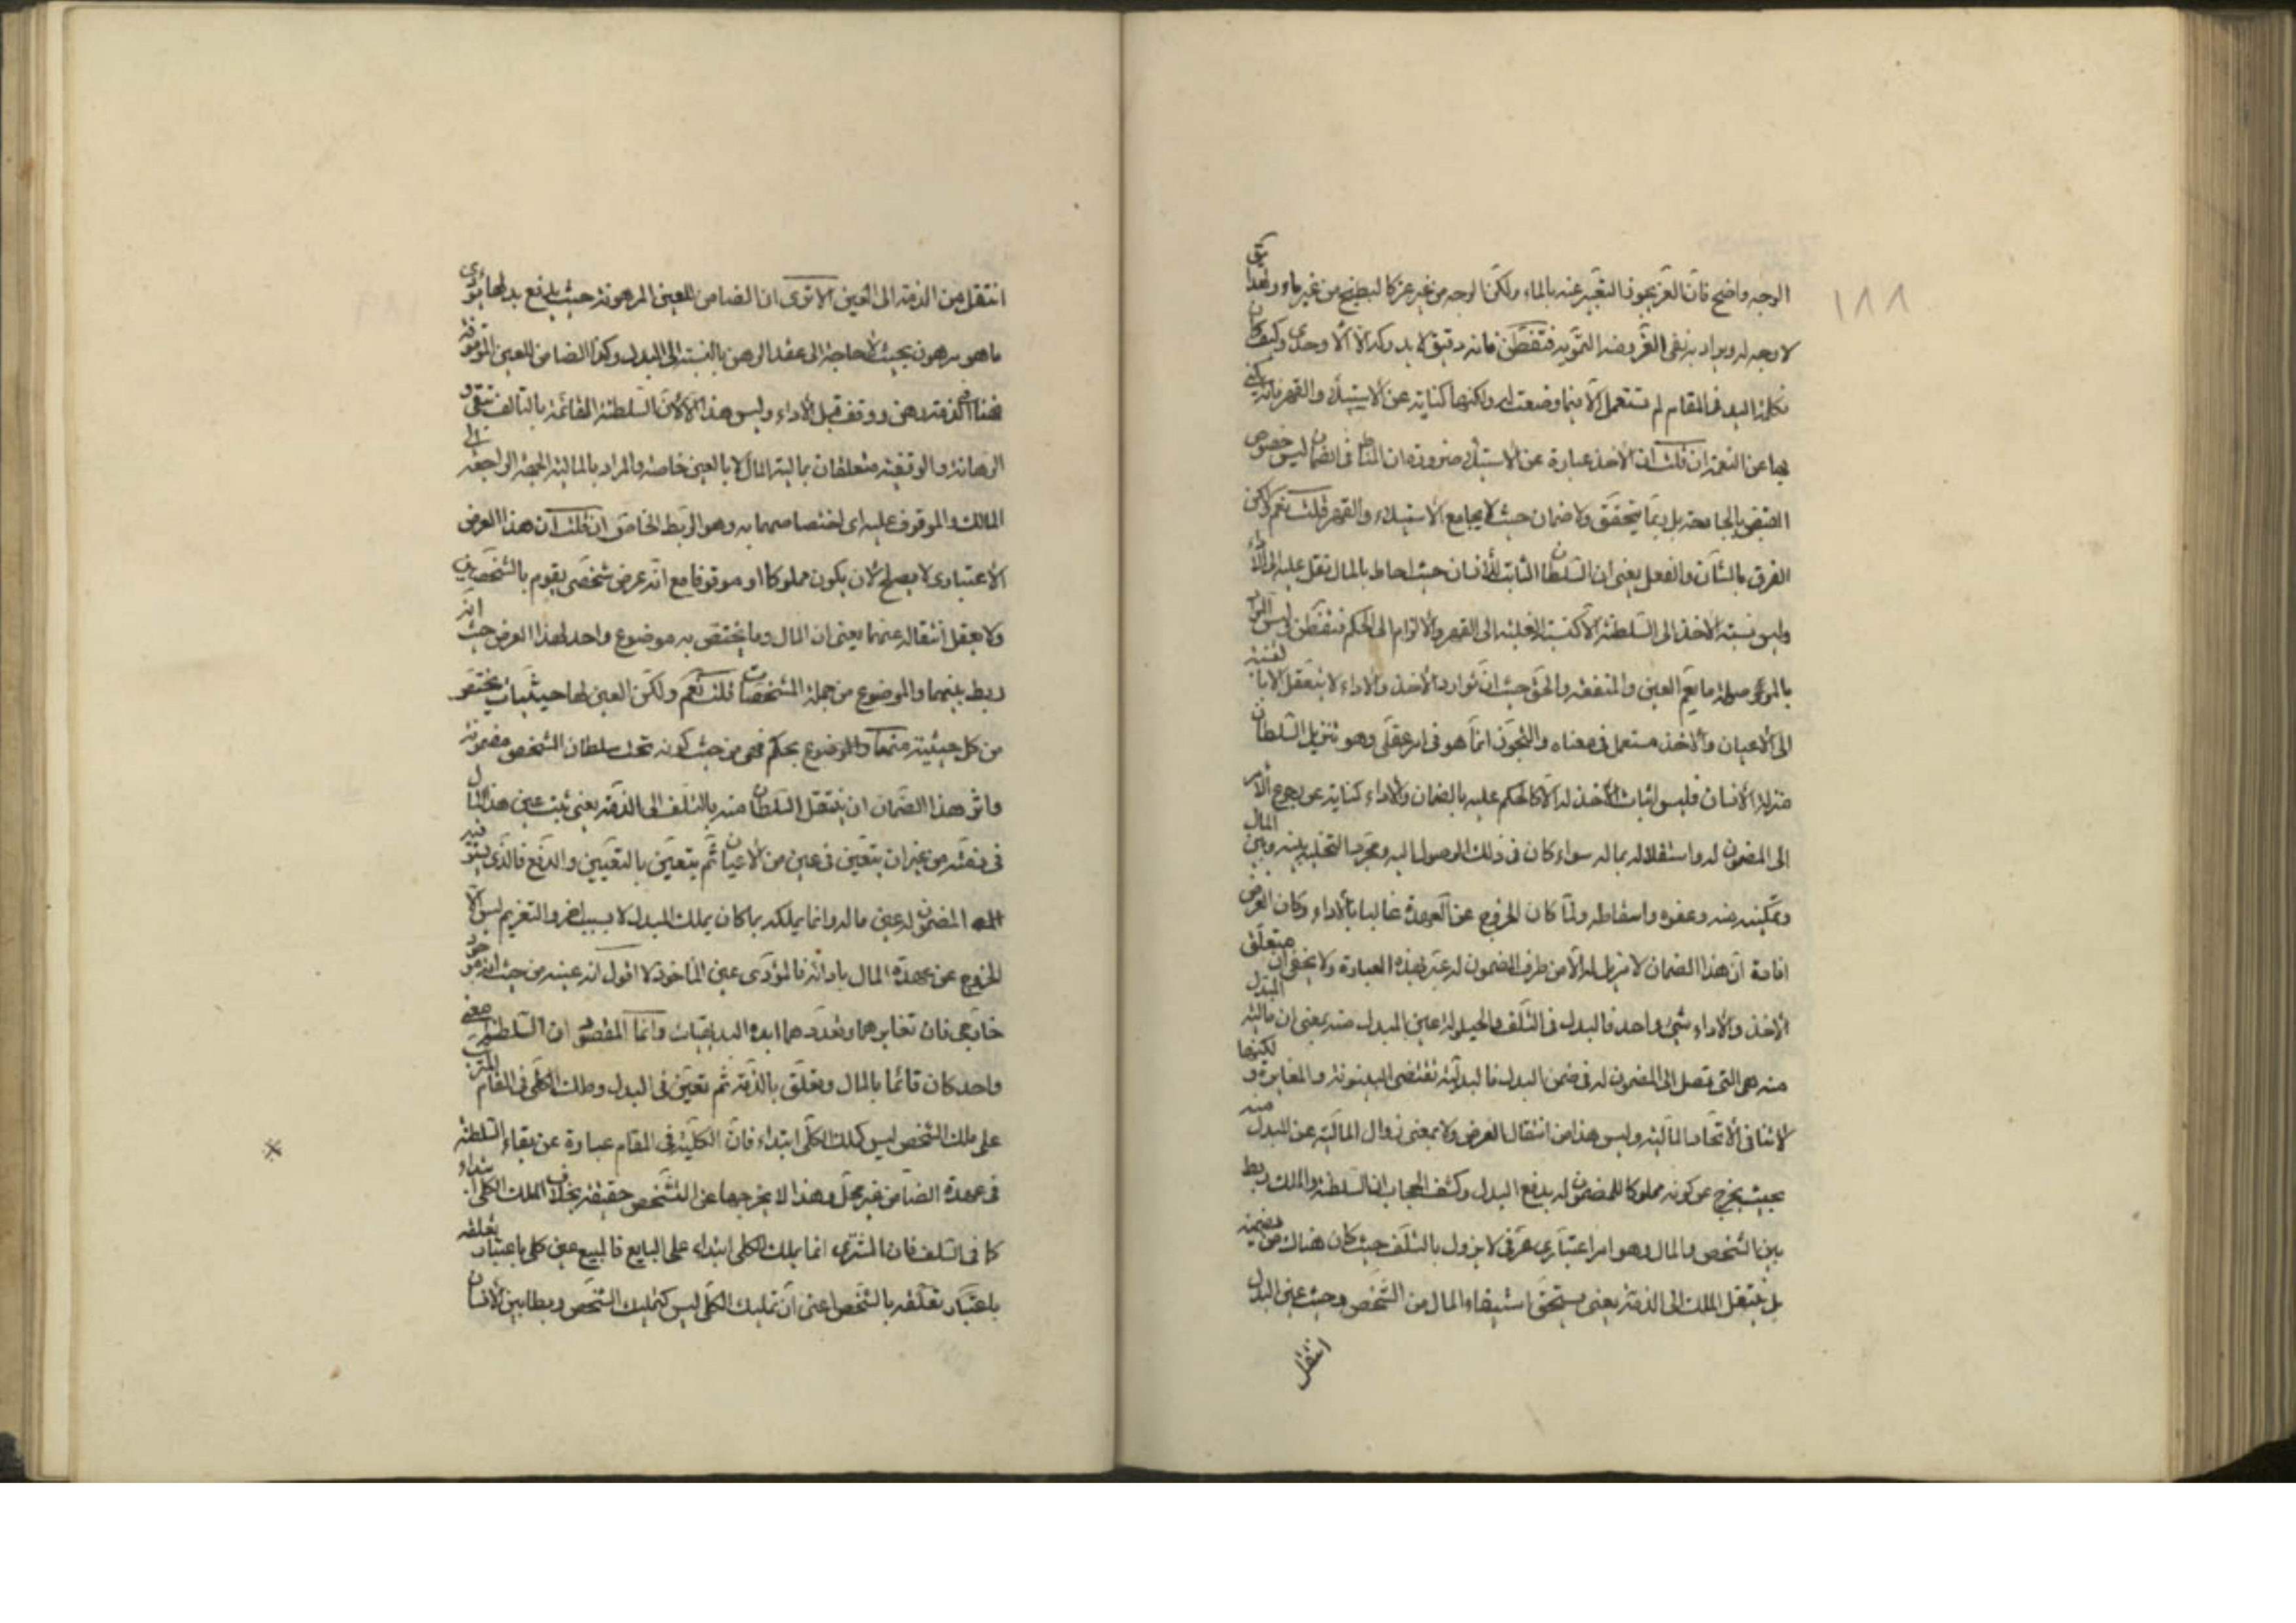 ١٨٨
الوجه واضح فان العز يجوز التعبير عنه بالماء ولكن الوجه من غير عز كالبطيخ من غير ماء ولهذا
لا وجه له ويراد به نفى فتفطن فانه دقيق لا يدركه الا الاوحدى وكيف كان
فكلمة اليد فى المقام لم تستعمل الا فيما وضعت له ولكنها كناية عن الاستيلاء والقهر فانه يكنى
بها عن النعمة ان قلت ان الاخذ عبارة عن الاستيلاء ضرورة ان المناط فى الضمان ليس خصوص
القبض بالجارحة بل ربما يتحقق ولا ضمان حيث لا يجامع الاستيلاء والقهر قلت نعم لكن
الفرق بالشأن والفعل يعنى ان السلطان الثابت للانسان حيث احاط بالمال ثقل عليه الى الاداء
وليس نسبة الاخذ الى السلطنة الا كنسبة الغلبة الى القهر والالزام الى الحكم فتفطن وليس المراد
بالموصولة ما يعم العين والمنفعة والحق حيث ان توارد الاخذ والاداء لا يتعقل الا بالنسبة
الى الاعيان والاخذ مستعمل فى معناه والتجوز انما هو فى امر عقلى وهو تنزيل السلطان
منزلة الانسان فليس اثبات الاخذ له الا كالحكم عليه بالضمان والاداء كناية عن رجوع الامر
الى المضمون له واستقلاله بماله سواء كان فى ذلك الوصول اليه ومجرد التخلية بينه وبين المال
وتمكينه منه وعفوه واسقاطه ولما كان الخروج عن العهدة غالبا بالاداء وكان الغرض
افادة ان هذا الضمان لا مزيل له الا من طرف المضمون له عبر بهذه العبارة ولا يخفى ان متعلق
الاخذ والاداء شىء واحد فالبدل فى التلف والحيلولة عين المبدل منه يعنى ان مالية المبدل
منه هى التى تصل الى المضمون له فى ضمن البدل فالبدلية تقتضى البينونة والمغايرة ولكنها
لا تنافى الاتحاد المالية وليس هذا من انتقال العرض ولا بمعنى زوال المالية عن المبدل منه
بحيث يخرج عن كونه مملوكا للمضمون له بدفع البدل وكشف الحجاب ان السلطنة والملك ربط
بين الشخص والمال وهو امر اعتبارى عرفى لا يزول بالتلف حيث كان هناك من يضمنه
بل ينتقل الملك الى الذمة يعنى يستحق استيفاء المال من الشخص وحيث عين البدل
انتقل
انتقل من الذمة الى العين الا ترى ان الضامن للعين المرهونة حيث يدفع بدلها يؤدى
ما هو مرهون بحيث لا حاجة الى عقد الرهن بالنسبة الى البدل وكذا الضامن للعين الموقوفة
فهنا فى الذمة رهن ووقف قبل الاداء وليس هذا الا لان السلطنة القائمة بالتالف تبقى و
الرهانة والوقفية متعلقان بمالية المال لا بالعين خاصة والمراد بالمالية الجهة الراجعة الى
المالك والموقوف عليه اى اختصاصهما به وهو الربط الخاص ان قلت ان هذا العرض
الاعتبارى لا يصلح لان يكون مملوكا او موقوفا مع انه عرض شخصى يقوم بالشخصين
ولا يعقل انتقاله عنهما يعنى ان المال وما يختص به موضوع واحد لهذا العرض حيث انه
ربط بينهما والموضوع من جملة المشخصات قلت نعم ولكن العين لها حيثيات يختص
من كل حيثية منها والموضوع بحكم فهى من حيث كونه تحت سلطان الشخص مضمونة
واثر هذا الضمان ان ينتقل السلطان منه بالتلف الى الذمة يعنى يثبت عين هذا المال
فى ذمته من غير ان يتعين فى عين من الاعيان ثم يتعين بالتعيين والدفع فالذى يستوفيه
المضمون له عين ماله وانما يملكه بما كان يملك المبدل لا بسبب اخر والتغريم ليس الا
الخروج عن عهدة المال بادائه فالمؤدى عين المأخوذ لا اقول انه عينه من حيث انه موجود
خارجى فان تغايرهما وتعددهما ابده البديهيات وانما المقصود ان السلطنة معنى
واحد كان قائما بالمال وتعلق بالذمة ثم تعين فى البدل وملك الكلى فى المقام المترتب
على ملك الشخص ليس كملك الكلى ابتداء فان الكلية فى المقام عبارة عن بقاء السلطنة
فى عهدة الضامن غير محل وهذا لا يخرجها عن التشخص حقيقة بخلاف الملك الكلى ابتداء
كما فى السلف فان المشترى انما يملك الكلى ابتداء على البايع فالمبيع عين كلى باعتبار تعلقه
باعتبار تعلقه بالشخص اعنى ان تمليك الكلى ليس كتمليك الشخص وربطا بين الانسان